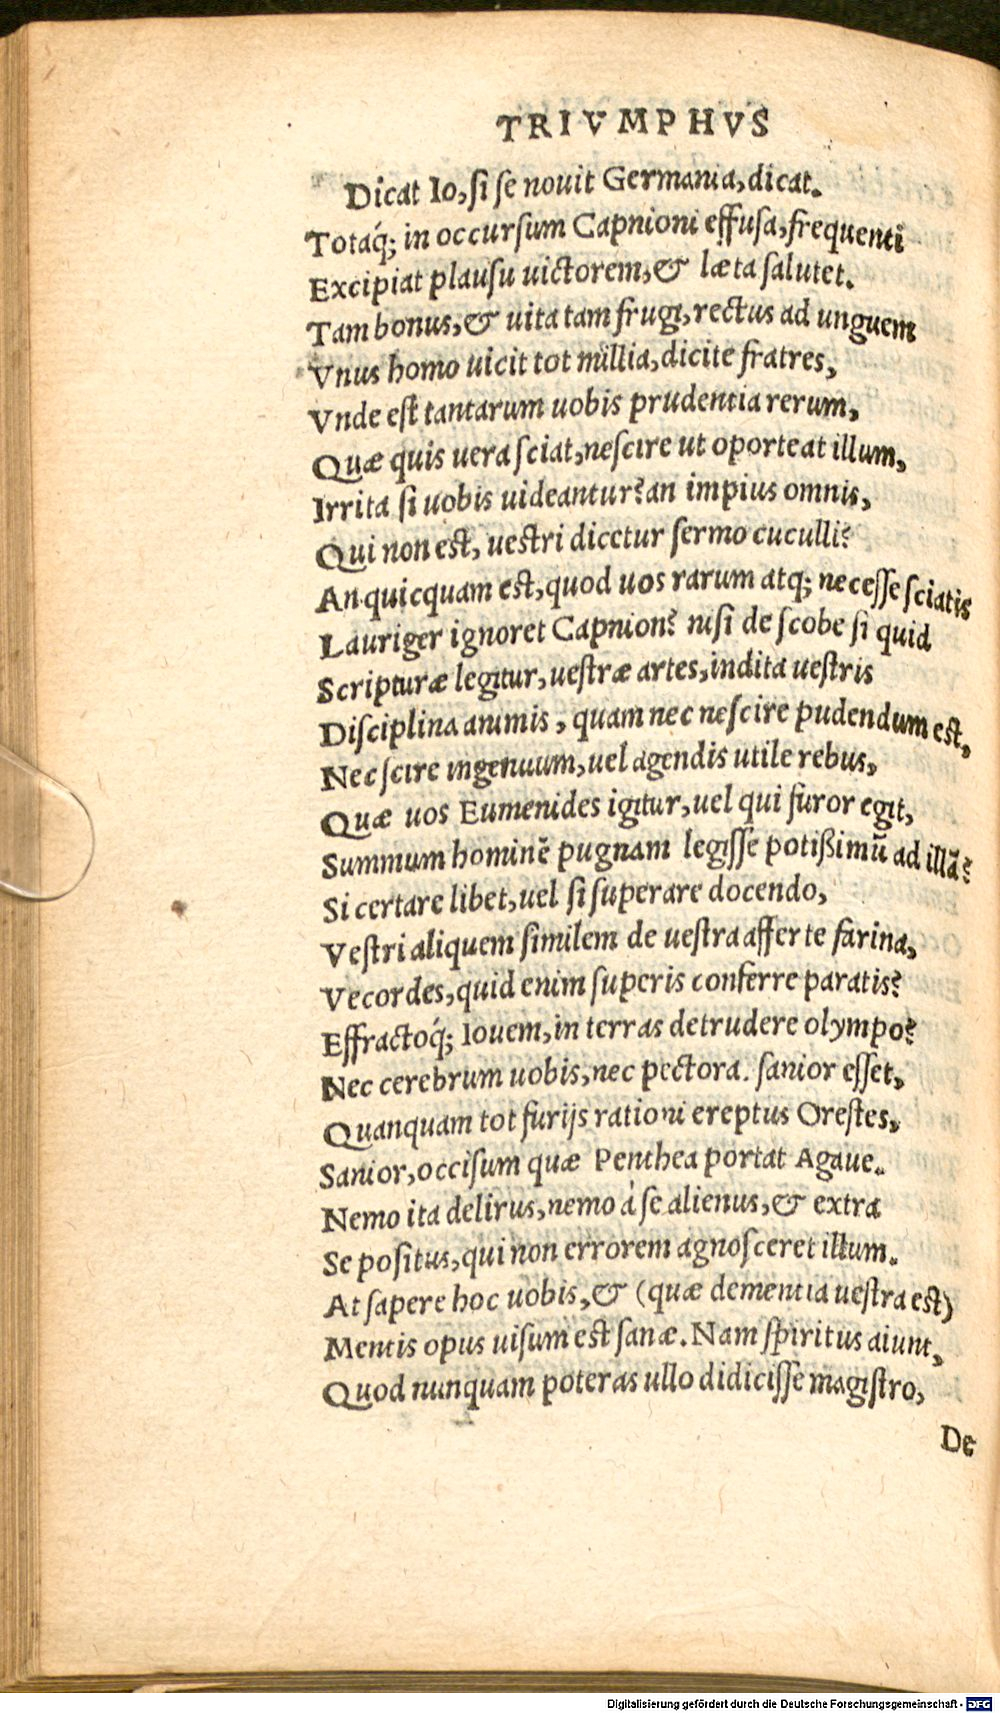 TRIVMPHVS
Dicat Io, si se nouit Germania, dicat.
Totaq́; in occursum Capnioni effusa, frequenti
Excipiat plausu uictorem, & læta salutet.
Tam bonus, & uita tam frugi, rectus ad unguem
Vnus homo uicit tot millia, dicite fratres,
Vnde est tantarum uobis prudentia rerum,
Quæ quis uera sciat, nescire ut oporteat illum,
Irrita si uobis uideantur? an impius omnis,
Qui non est, uestri dicetur sermo cuculli?
An quicquam est, quod uos rarum atq; necesse sciatis
Lauriger ignoret Capnion? nisi de scobe si quid
Scripturæ legitur, uestræ artes, indita uestris
Disciplina animis, quam nec nescire pudendum est,
Nec scire ingenuum, uel agendis utile rebus,
Quæ uos Eumenides igitur, uel qui furor egit,
Summum hominē pugnam legisse potißimū ad illā?
Si certare libet, uel si superare docendo,
Vestri aliquem similem de uestra afferte farina,
Vecordes, quid enim superis conferre paratis?
Effractoq́; Iouem, in terras detrudere olympo?
Nec cerebrum uobis, nec pectora. sanior esset,
Quanquam tot furijs rationi ereptus Orestes,
Sanior, occisum quæ Penthea portat Agaue.
Nemo ita delirus, nemo à se alienus, & extra
Se positus, qui non errorem agnosceret illum.
At sapere hoc uobis, & (quæ dementia uestra est)
Mentis opus uisum est sanæ. Nam spiritus aiunt,
Quod nunquam poteras ullo didicisse magistro,
De
Digitalisierung gefördert durch die Deutsche Forschungsgemeinschaft - DFG